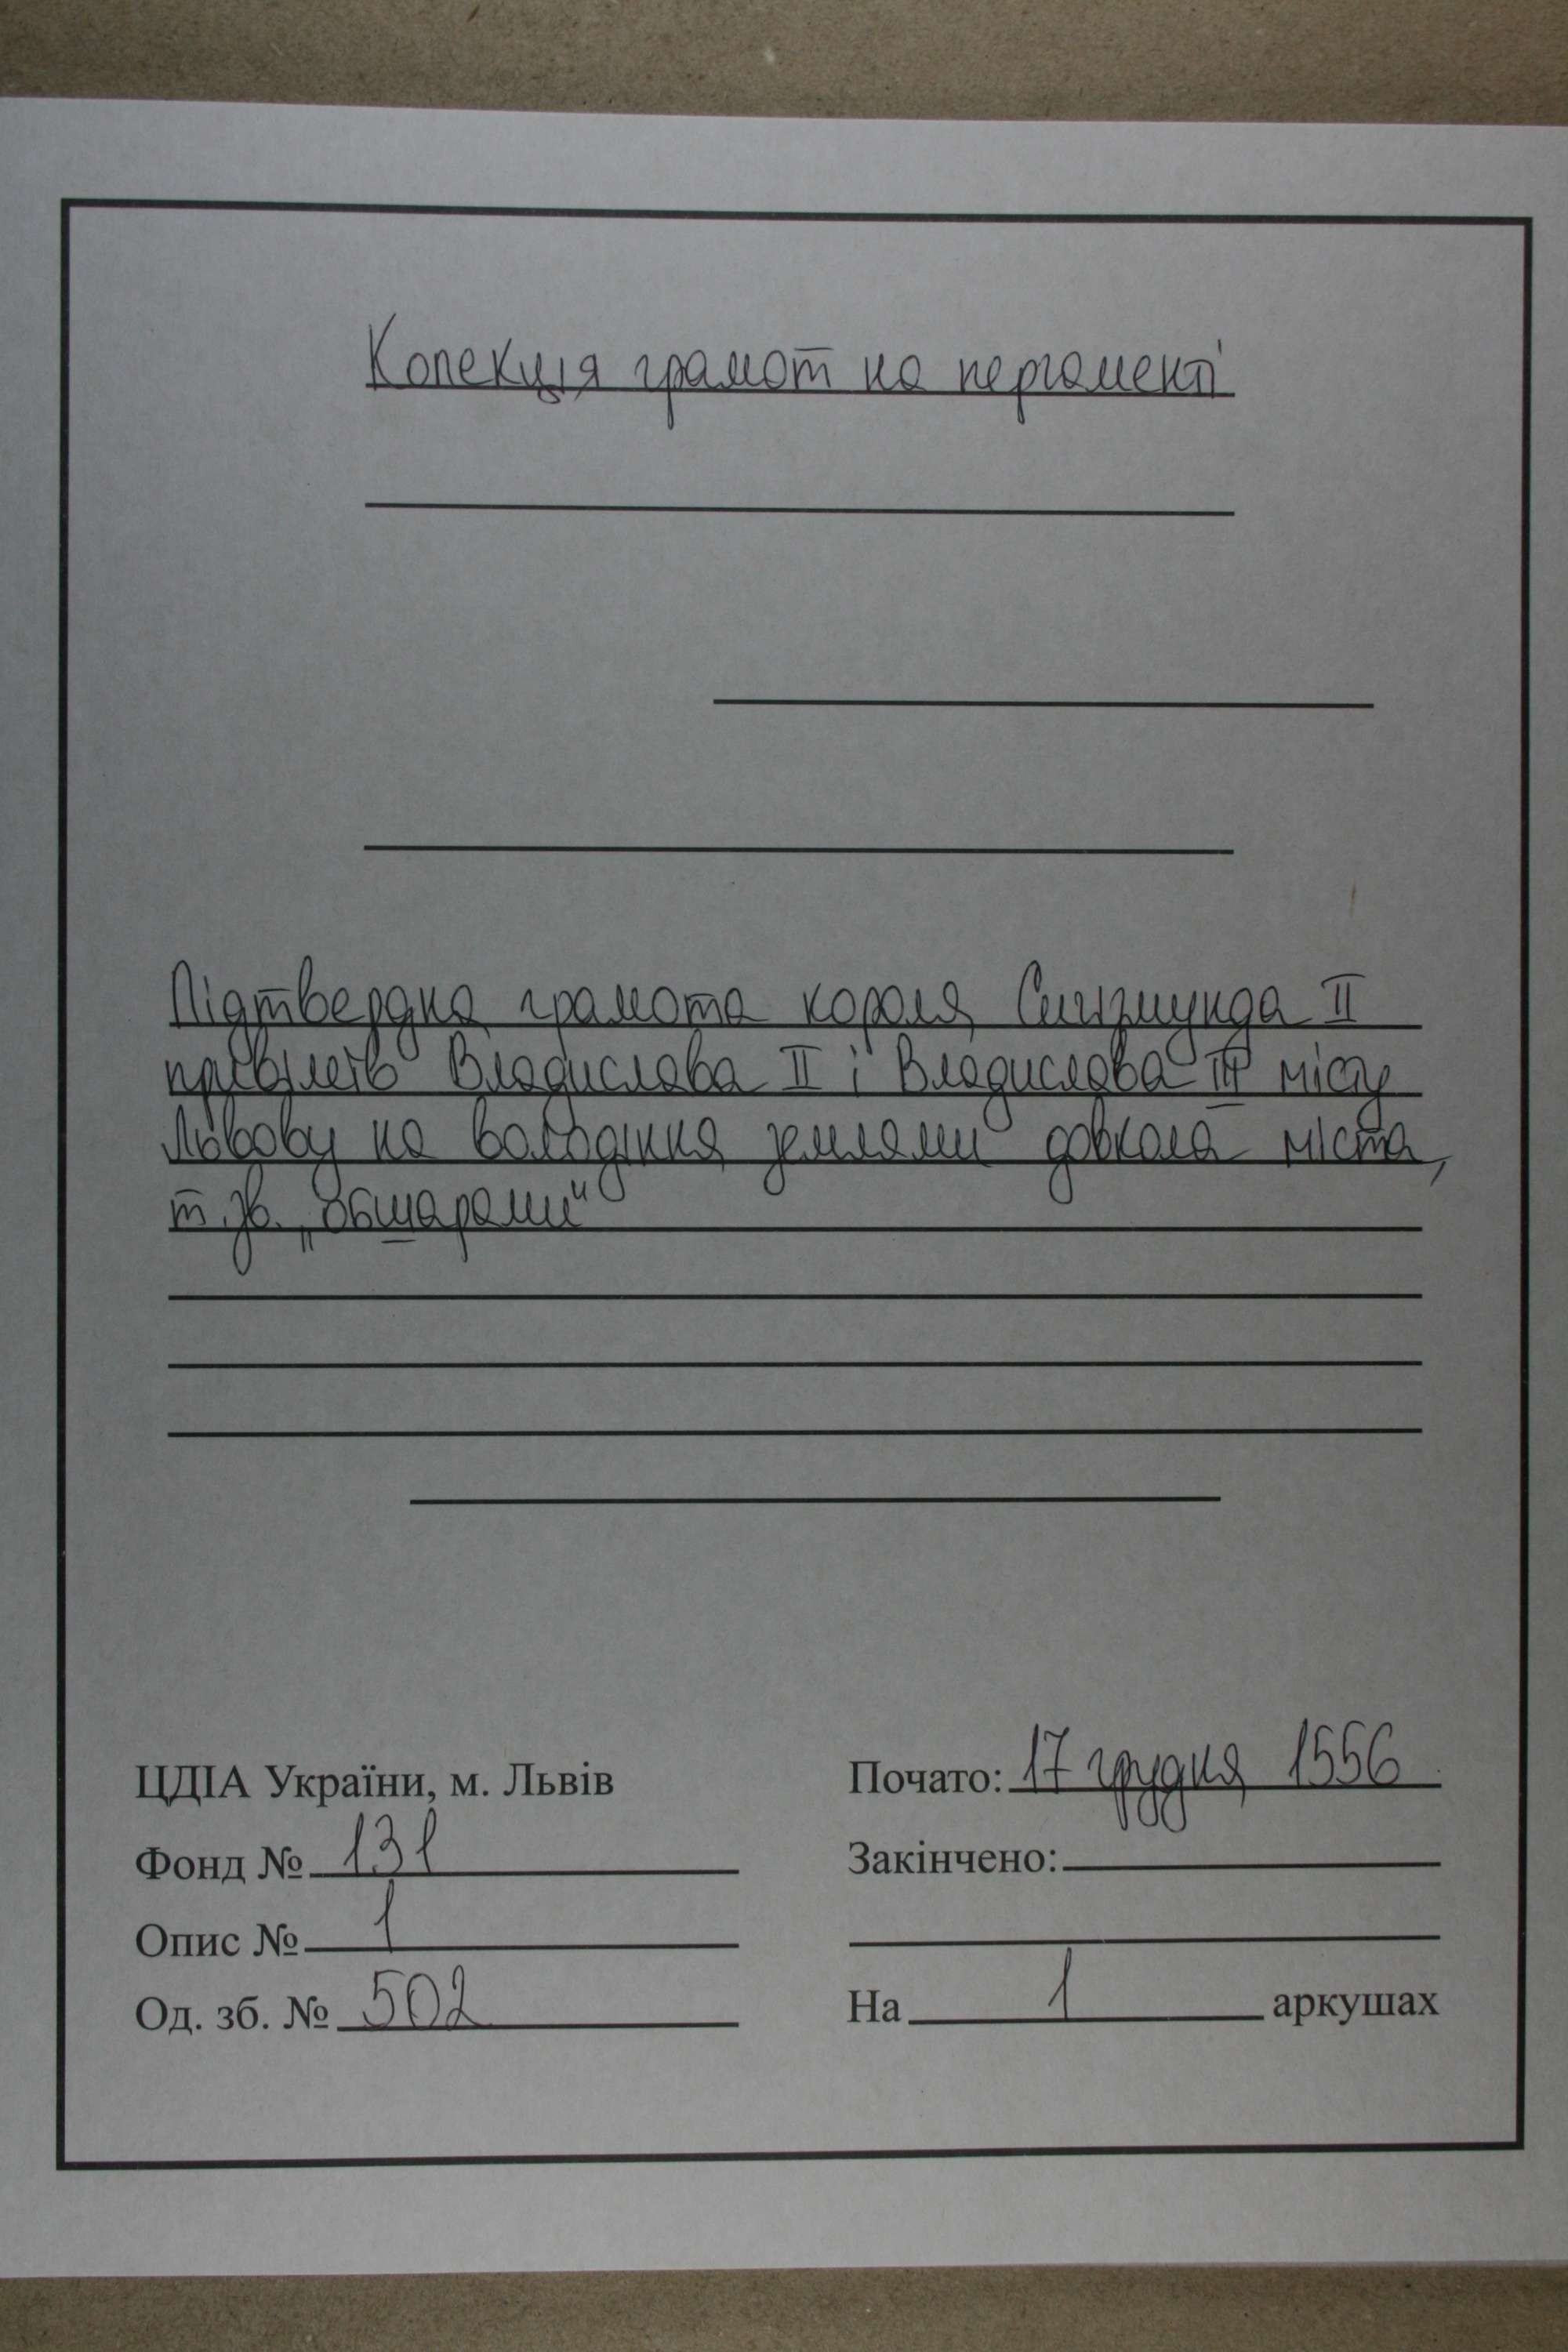 Колекція грамот на пергаменті
Підтвердна грамота короля Сигізмунда II
привілеїв Владислава II і Владислава III місту
Львову на володіння землями довкола міста,
т. зв. „обшарами"
ЦДІА України, м. Львів
Почато: 17 грудня 1556
Фонд № 131
Закінчено:
Опис № 1
Од. зб. № 502
На 1 аркушах